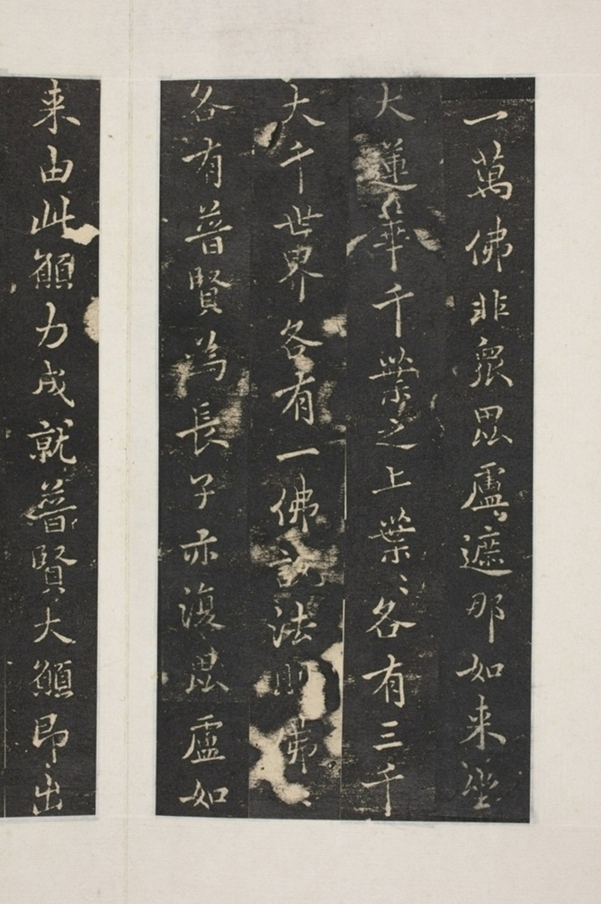 一萬佛非衆毘盧遮那如来坐
大蓮華千葉之上葉〻各有三千
大千世界各有一佛説法
各有普賢為長子亦復毘盧如
来由此願力成就普賢大願即出